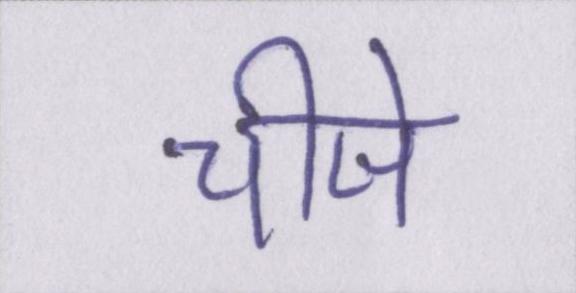 चीजे